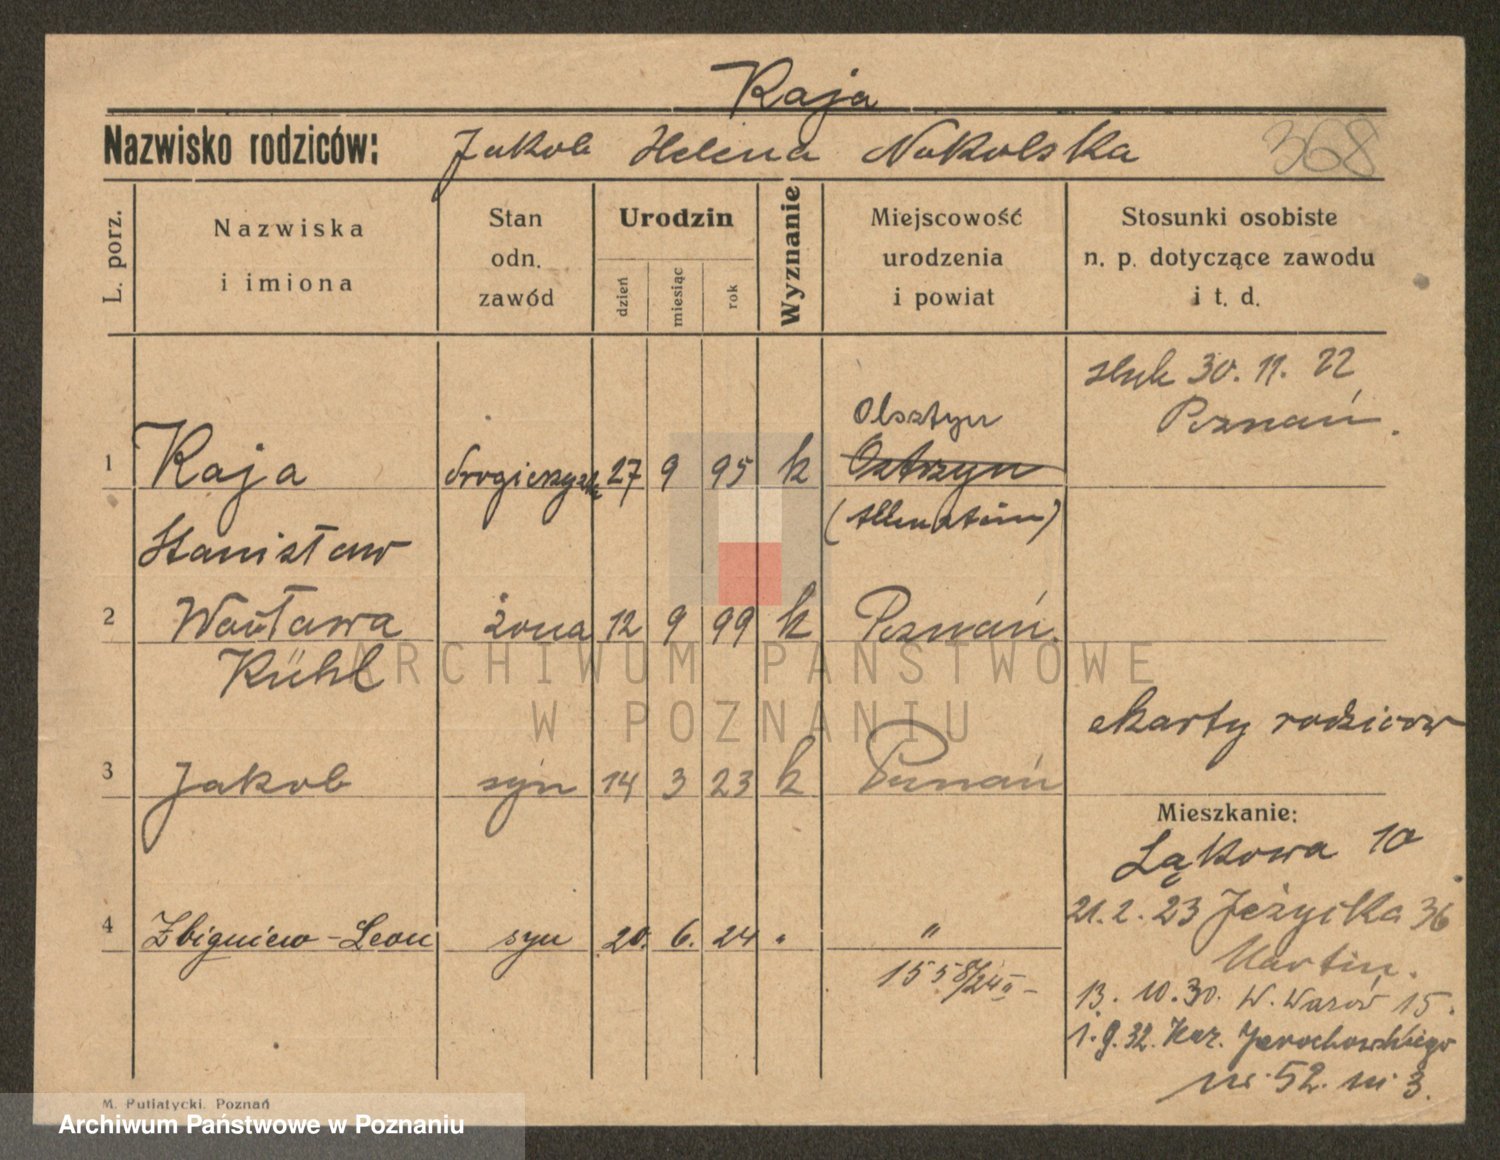 Raja
Nazwisko rodziców: Jakob Helena Nokolska 368
L. porz. Nazwiska i imiona Stan odn. zawód Urodzin dzień miesiąc rok Wyznanie Miejscowość urodzenia i powiat Stosunki osobiste n. p. dotyczące zawodu i t. d.
ślub 30. 11. 22
Poznań.
Olsztyn
1 Raja drogierzysta 27 9 95 k Ostrzyn
(Allenstein)
Stanisław
2 Wacława żona 12 9 99 k Poznań.
Kühl
ARCHIWUM PAŃSTWOWE
W POZNANIU
karty rodziców
3 Jakob syn 14 3 23 k Poznań
Mieszkanie:
Łąkowa 10
21. 2. 23 Jeżycka 36
4 Zbigniew-Leon syn 20. 6. 24 " "
Martin.
1558/24
13. 10. 30. W. Wazów 15.
1. 9. 32. Kaz. Jarochowskiego
nr. 52. m 3.
M. Putiatycki, Poznań
Archiwum Państwowe w Poznaniu